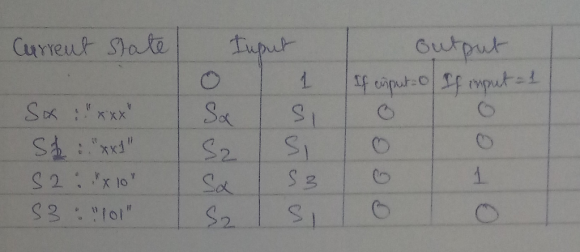 Current State Input Output
0 1 If input=0 If input=1
Sα :"xxx" Sα S1 0 0
S1 : "xx1" S2 S1 0 0
S2 : "x10" Sα S3 0 1
S3 : "101" S2 S1 0 0